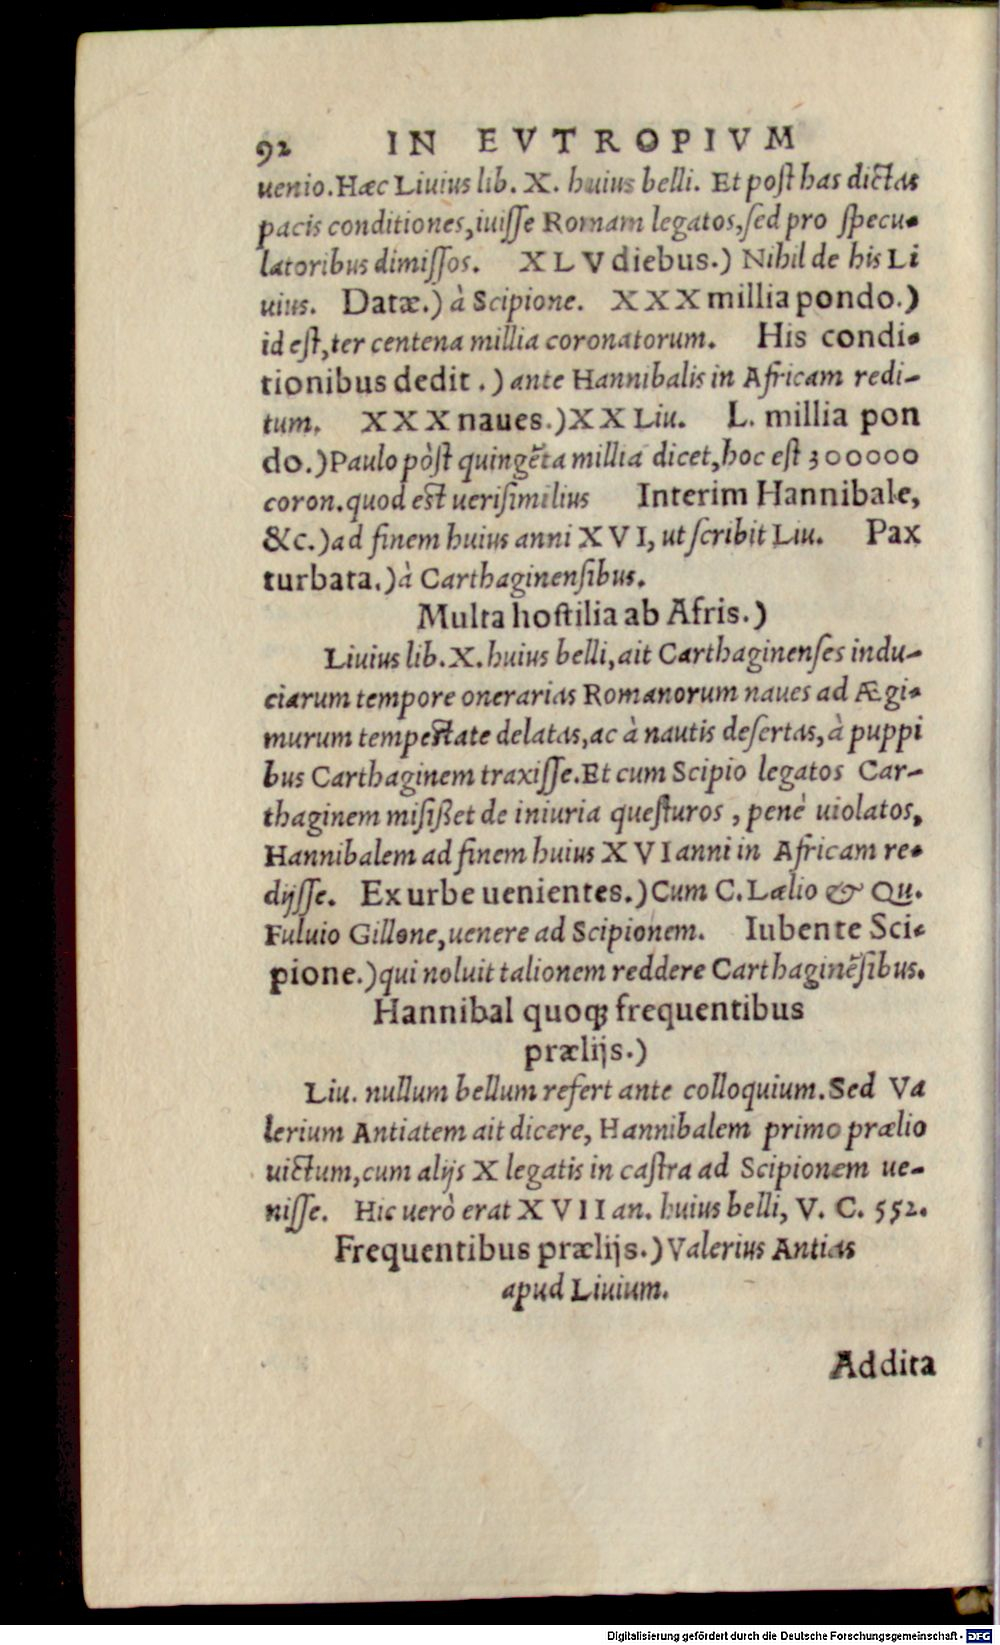 92 IN EVTROPIVM
uenio.Hæc Liuius lib. X. huius belli. Et post has dictas
pacis conditiones,iuisse Romam legatos,sed pro specu-
latoribus dimissos. XLV diebus.) Nihil de his Li
uius. Datæ.) à Scipione. XXX millia pondo.)
id est,ter centena millia coronatorum. His condi-
tionibus dedit.) ante Hannibalis in Africam redi-
tum. XXX naues.) XX Liu. L. millia pon
do.) Paulo pòst quingẽta millia dicet,hoc est 300000
coron.quod est uerisimilius Interim Hannibale,
&c.) ad finem huius anni XVI, ut scribit Liu. Pax
turbata.) à Carthaginensibus.
Multa hostilia ab Afris.)
Liuius lib.X.huius belli,ait Carthaginenses indu-
ciarum tempore onerarias Romanorum naues ad Ægi-
murum tempestate delatas,ac à nautis desertas,à puppi
bus Carthaginem traxisse.Et cum Scipio legatos Car-
thaginem misißet de iniuria questuros, penè uiolatos,
Hannibalem ad finem huius XVI anni in Africam re-
dijsse. Ex urbe uenientes.) Cum C.Lælio & Qu.
Fuluio Gillone,uenere ad Scipionem. Iubente Sci-
pione.) qui noluit talionem reddere Carthaginẽsibus.
Hannibal quoq; frequentibus
prælijs.)
Liu. nullum bellum refert ante colloquium.Sed Va
lerium Antiatem ait dicere, Hannibalem primo prælio
uictum,cum alijs X legatis in castra ad Scipionem ue-
nisse. Hic uerò erat XVII an. huius belli, V. C. 552.
Frequentibus prælijs.) Valerius Antias
apud Liuium.
Addita
Digitalisierung gefördert durch die Deutsche Forschungsgemeinschaft - DFG